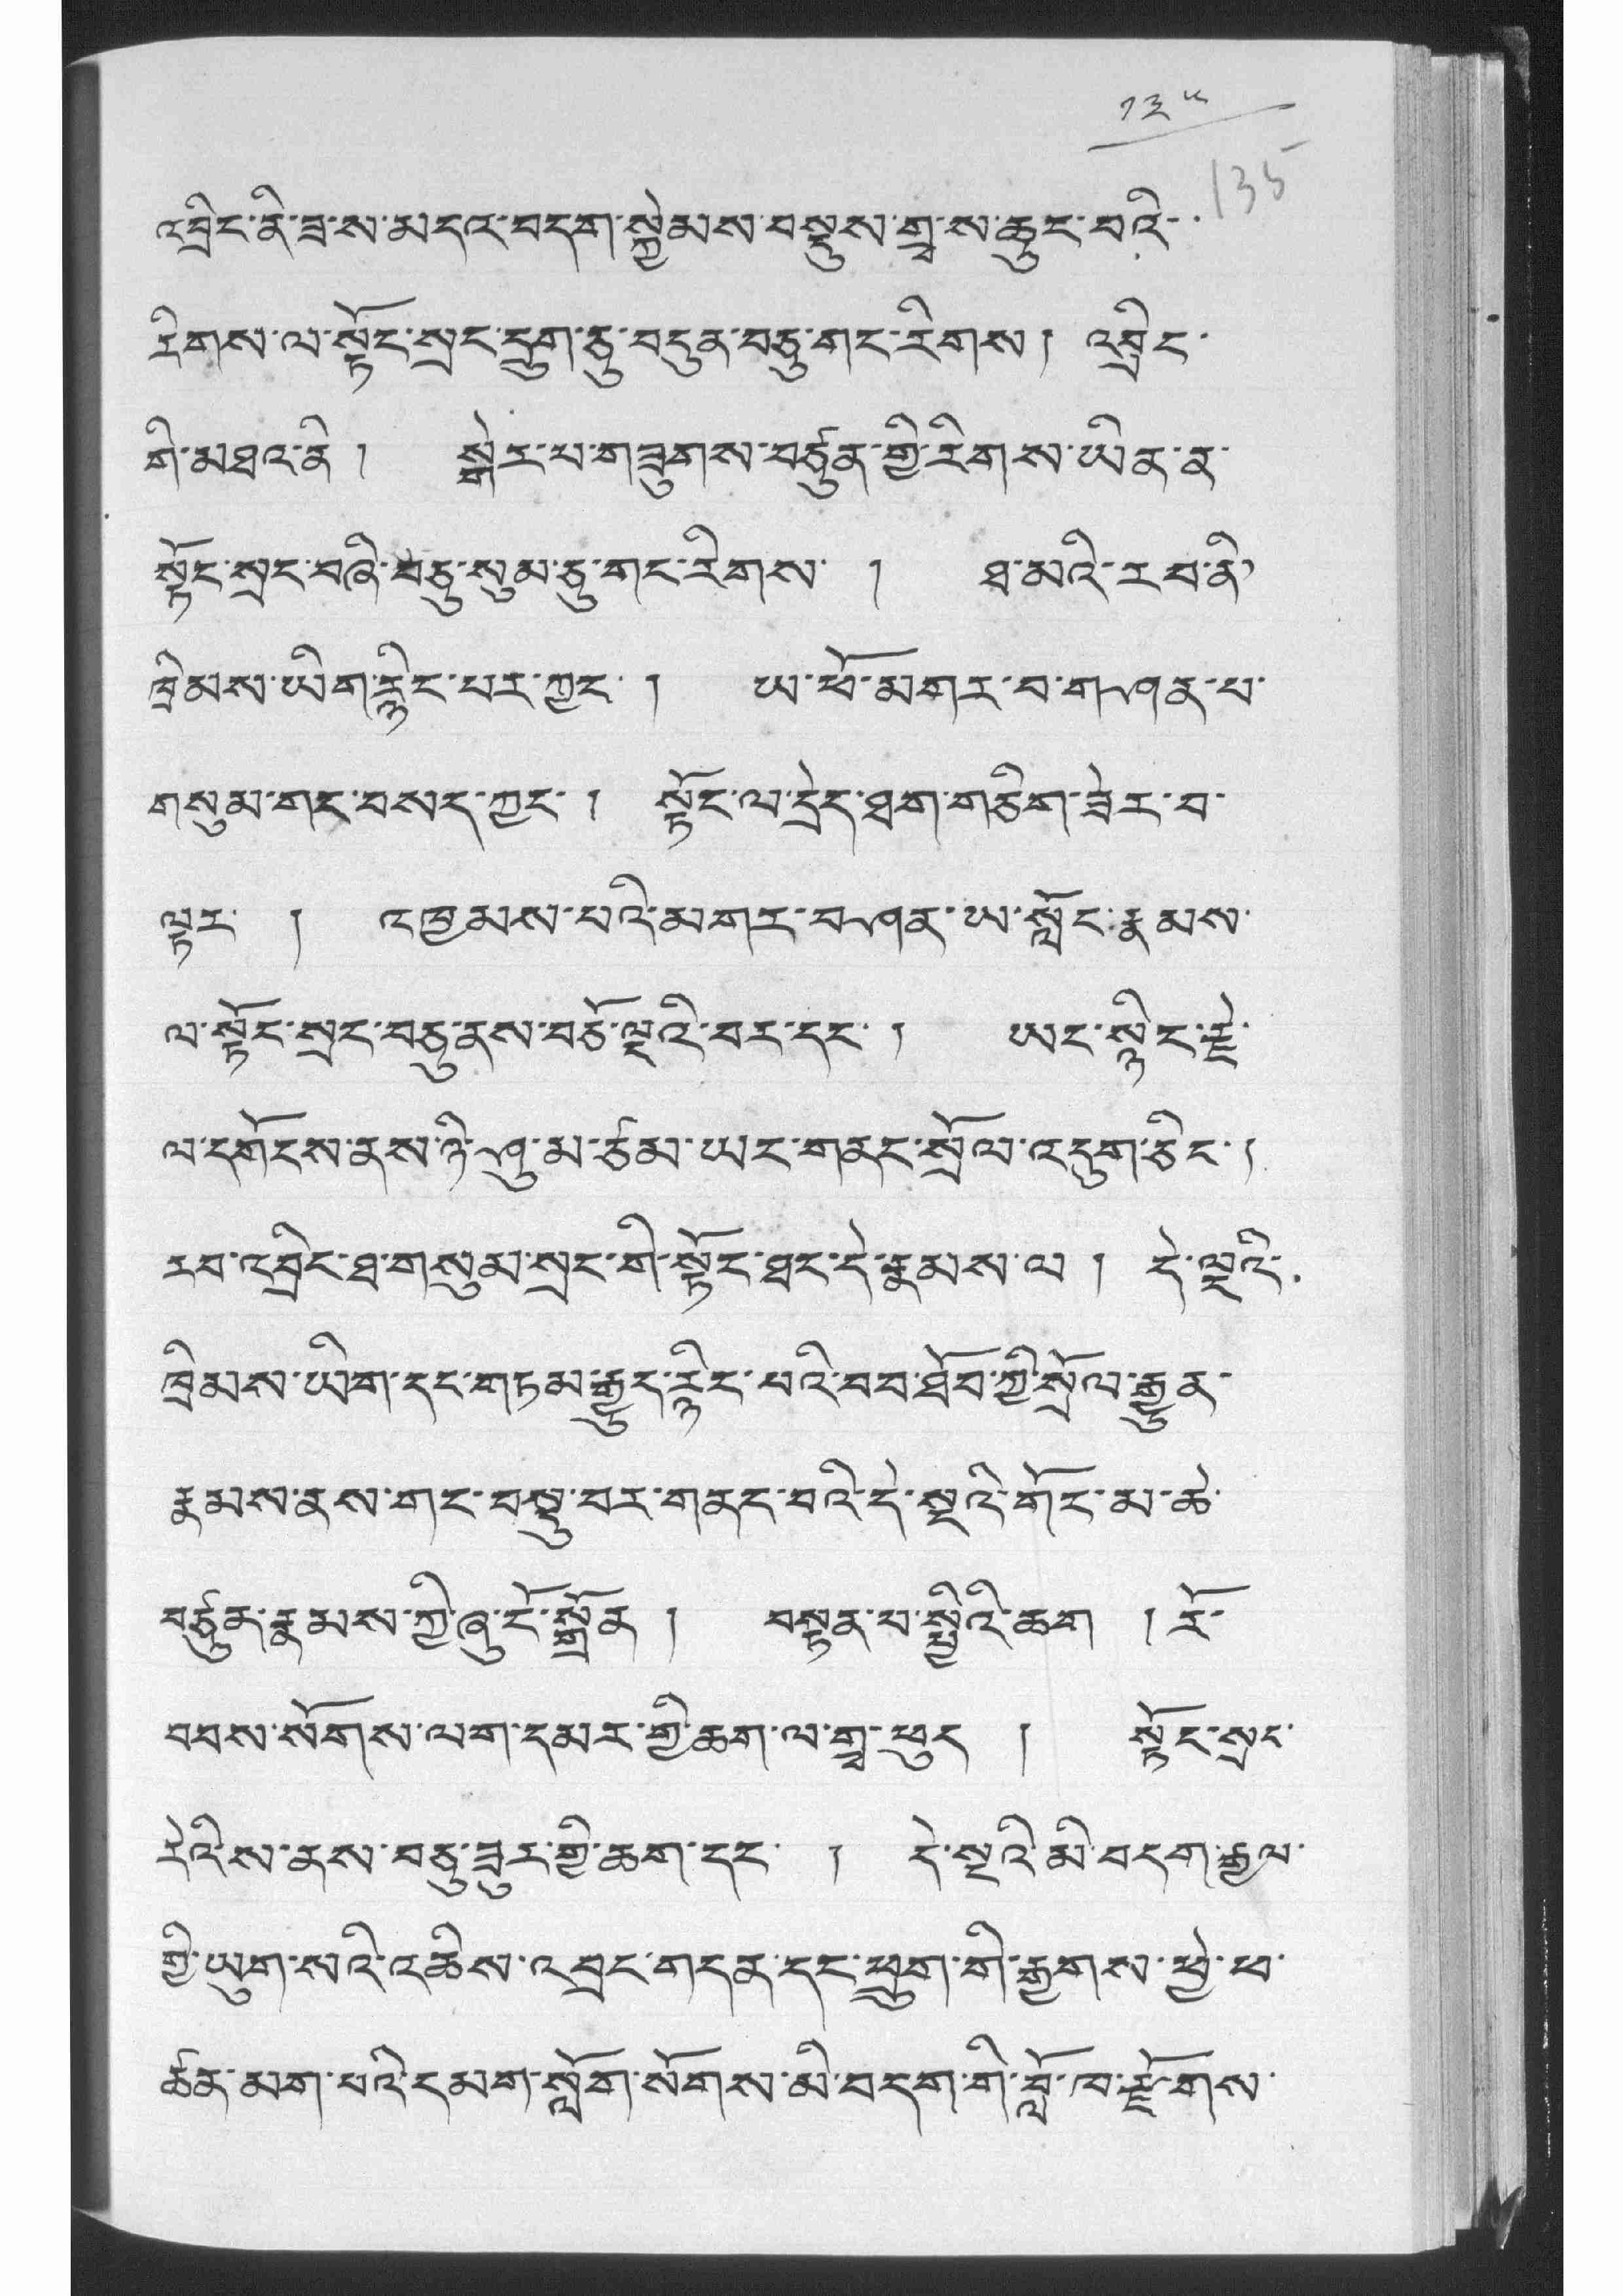 ༡༣༥
135
འབྲིང་ནི་ཟླ་ས་མདའ་བདག་སྐྱེམས་བསྡུས་གྲྭ་ས་ཆུང་བའི་
རིགས་ལ་སྟོང་སྲང་དྲུག་ཅུ་བདུན་བཅུ་གང་རིགས། འབྲིང་
གི་མཐའ་ནི། སྒེར་པ་གཟུགས་བཙུན་གྱི་རིགས་ཡིན་ན་
སྟོང་སྲང་བཞི་བཅུ་སུམ་ཅུ་གང་རིགས་ ། ཐ་མའི་རབ་ནི་
ཁྲིམས་ཡིག་རྙིང་པར་ཀྱང་ ། ཡ་ཕོ་མགར་བ་གཤན་པ་
གསུམ་གང་བསད་ཀྱང་ ། སྟོང་ལ་དྲེད་ཐག་གཅིག་ཟེར་བ་
ལྟར་ ། འཁྱམས་པའི་མགར་བཤན་ཡ་སློང་རྣམས་
ལ་སྟོང་སྲང་བཅུ་ནས་བཅོ་ལྔའི་བར་དང་ ། ཡང་སྙིང་རྗེ་
ལ་དགོངས་ནས་ཉི་ཤུ་མ་ཙམ་ཡང་གནང་སྲོལ་འདུག་ཅིང་།
རབ་འབྲིང་ཐ་གསུམ་སྲང་གི་སྟོང་ཐང་དེ་རྣམས་ལ ། དེ་ལྔའི་
ཁྲིམས་ཡིག་དང་གཏམ་རྒྱུད་རྙིང་པའི་བབ་ཐོབ་ཀྱི་སྲོལ་རྒྱུན་
རྣམས་ནས་གང་བསྡུ་བར་གནད་བའི་དེ་སྔའི་གོང་མ་ཆེ་
བཙུན་རྣམས་ཀྱི་ཞུ་ངོ་སྒྲོན ། བསྟན་པ་སྤྱིའི་ཆག ། རོ་
བབས་སོགས་ལག་དམར་གྱི་ཆག་ལ་གྲྭ་ཕུད ། སྟོང་སྲང་
རེའི་ས་ནས་བཅུ་ཟུར་གྱི་ཆག་དང་ ། དེ་སྔའི་མི་བདག་རྒྱལ་
ཀྱི་ཡུག་སའི་འཆིས་འབྲང་གདན་དང་ཕྲུག་གི་རྒྱགས་ཕྱེ་ཕ་
ཚན་མག་པའི་དམག་སློག་སོགས་མི་བདག་གི་བློ་ཁ་རྫོགས་